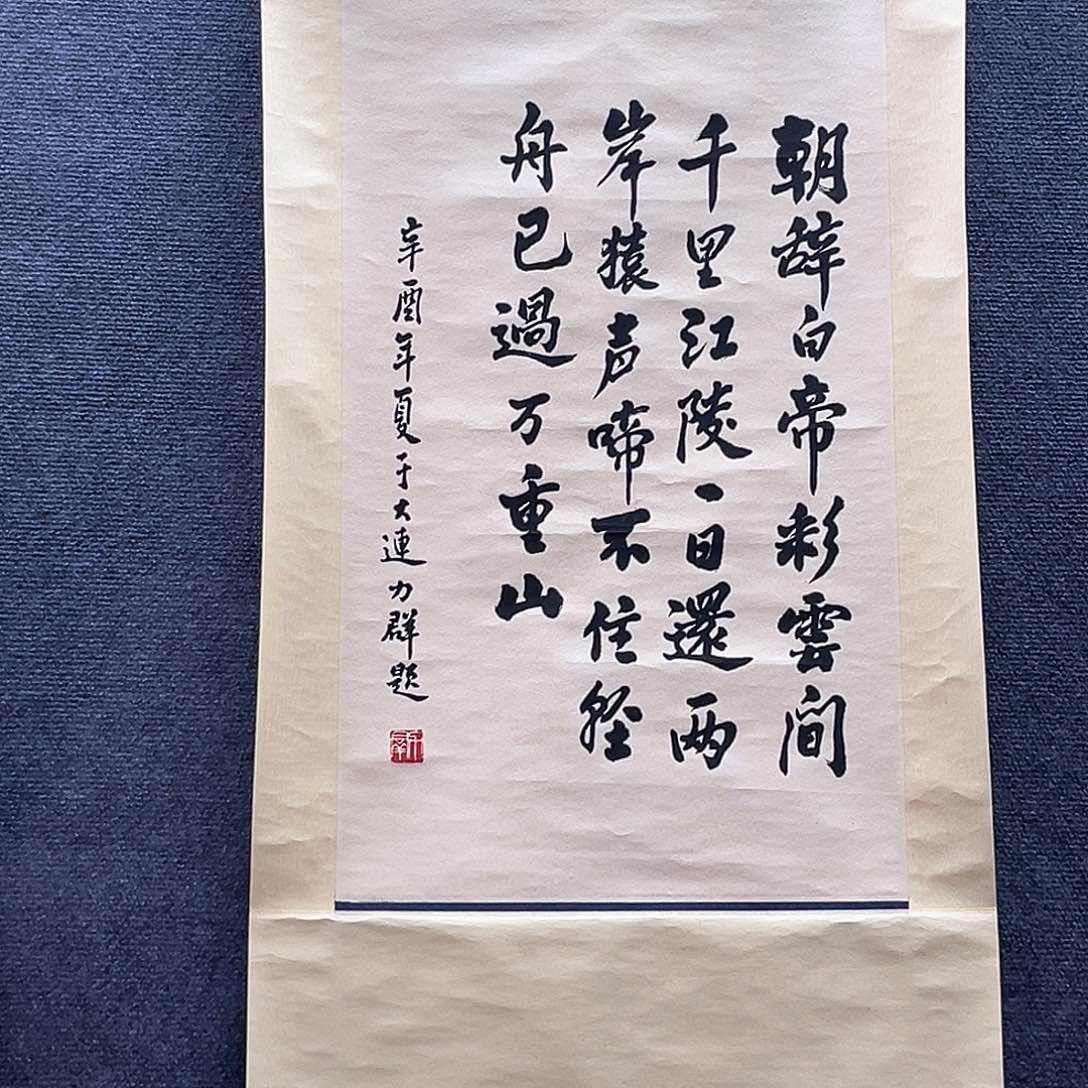 朝辞白帝彩雲间
千里江陵一日還两
岸猿声啼不住轻
舟已過万重山
辛酉年夏于大連力群题